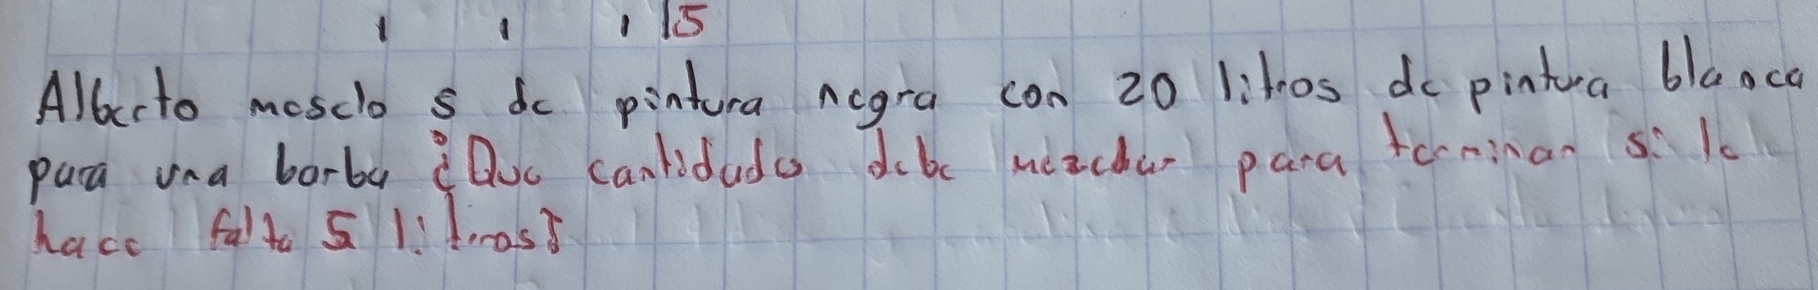 15
Alberto mesclo 5 de pintura negra con 20 litros de pintura blanca
para una barba ¿Que cantidades debe mezclar para terminar si le
hace falta 5 litros?